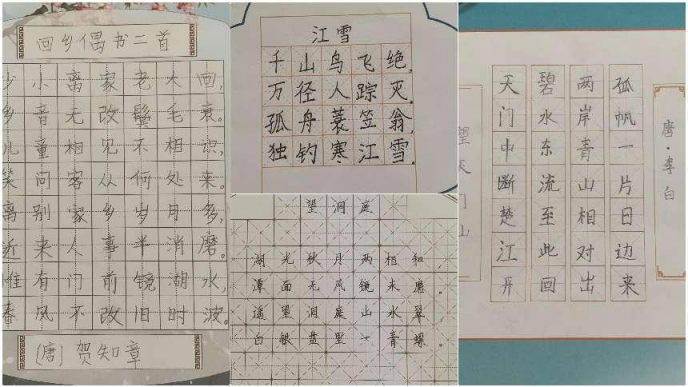 回乡偶书二首
少小离家老大回,
乡音无改鬓毛衰。
儿童相见不相识,
笑问客从何处来。
离别家乡岁月多,
近来人事半消磨。
惟有门前镜湖水,
春风不改旧时波。
(唐)贺知章
江雪
千山鸟飞绝,
万径人踪灭.
孤舟蓑笠翁,
独钓寒江雪.
望洞庭
湖光秋月两相和
潭面无风镜未磨
遥望洞庭山水翠
白银盘里一青螺
望天门山
天门中断楚江开
碧水东流至此回
两岸青山相对出
孤帆一片日边来
唐·李白